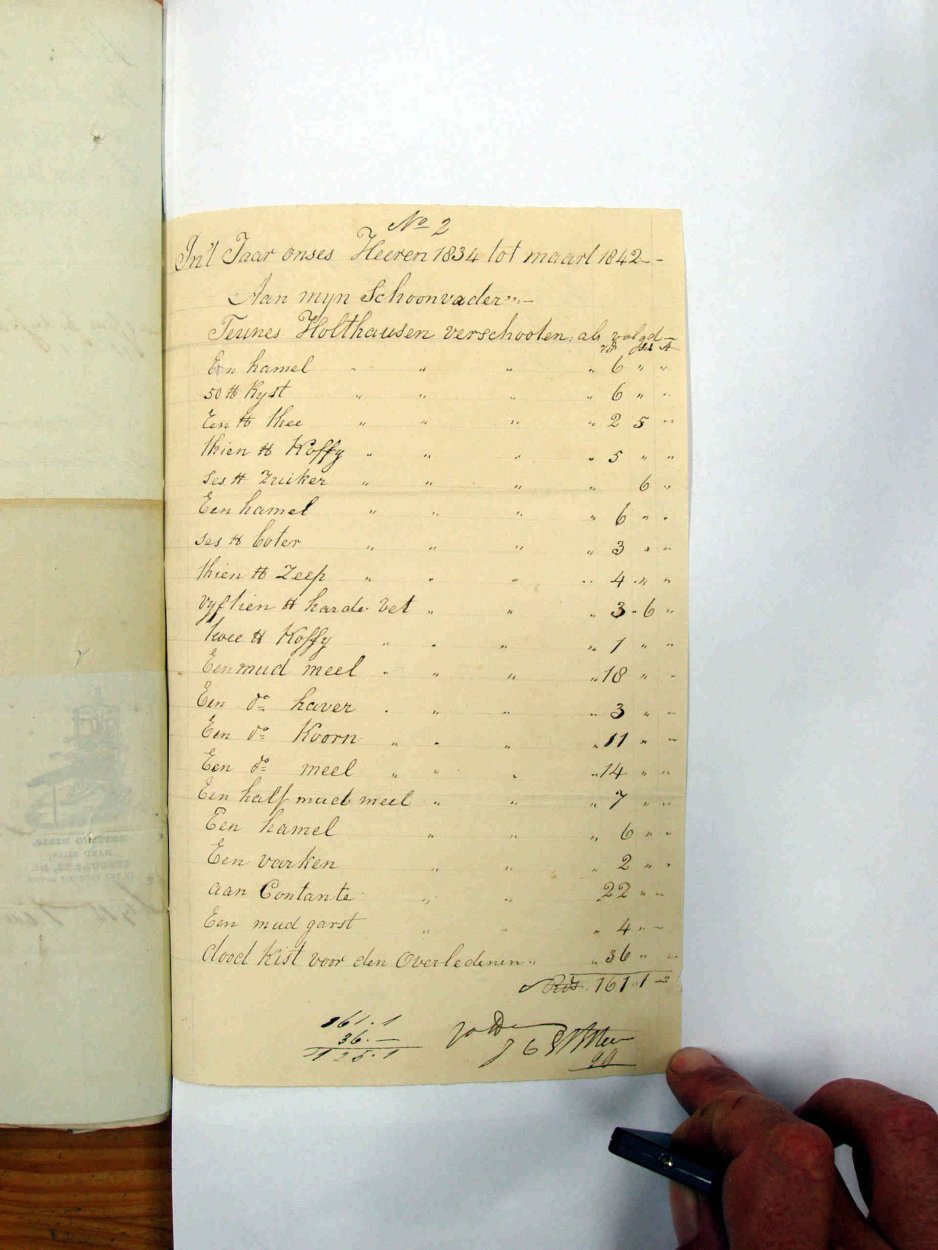 No 2
In't Jaar onses Heeren 1834 tot maart 1842 -
Aan myn Schoonvader
Teunes Holthausen verschooten, als volgd
rds
Een hamel " " " " 6 " "
50 ℔ Ryst " " " " 6 " "
Een ℔ thee " " " " 2 5 "
thien ℔ Koffy " " " " 5 " "
ses ℔ Zuiker " " " " 6 "
Een hamel " " " " 6 " "
ses ℔ boter " " " " 3 " "
thien ℔ Zeep " " " " 4 " "
vyftien ℔ harde vet " " " 3 - 6 "
twee ℔ Koffy " " " " 1 " "
Een mud meel " " " " 18 " "
Een do haver " " " " 3 " "
Een do Koorn " " " " 11 " "
Een do meel " " " " 14 " "
Een half mud meel " " " 7 " "
Een hamel " " " 6 " "
Een varken " " " 2 " "
aan Contante " " " 22 " "
Een mud garst " " " 4 " -
dood Kist voor den Overledenen " " 36 " "
Rds. 161. 1 -
161. 1
36. -
125. 1